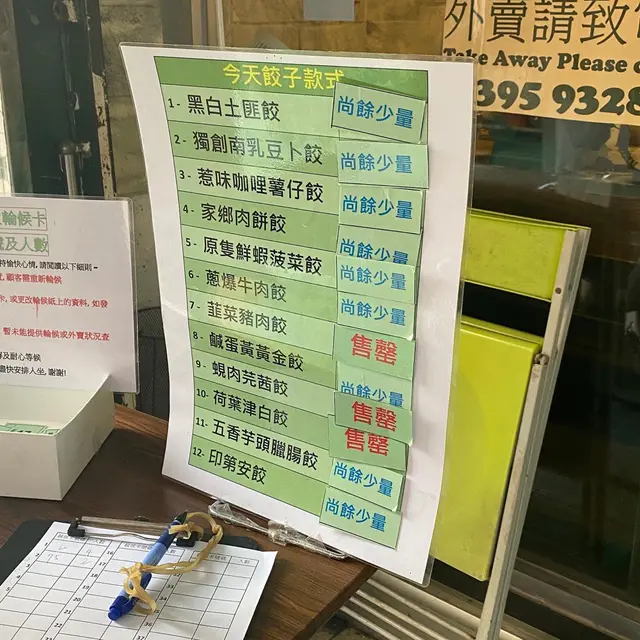 外賣請致
Take Away Please c
395 9328
今天餃子款式
1- 黑白土匪餃 尚餘少量
2- 獨創南乳豆卜餃 尚餘少量
3- 惹味咖哩薯仔餃 尚餘少量
4- 家鄉肉餅餃 尚餘少量
5- 原隻鮮蝦菠菜餃 尚餘少量
6- 蔥爆牛肉餃 尚餘少量
7- 韮菜豬肉餃 售罄
8- 鹹蛋黃黃金餃 尚餘少量
9- 蜆肉芫茜餃 售罄
10- 荷葉津白餃 售罄
11- 五香芋頭臘腸餃 尚餘少量
12- 印第安餃 尚餘少量
輪候卡
及人數
持愉快心情, 請閱讀以下細則 -
, 顧客需重新輪候
卡, 或更改輪候紙上的資料, 如發
暫未能提供輪候或外賣狀況查
及耐心等候
盡快安排入坐, 謝謝!